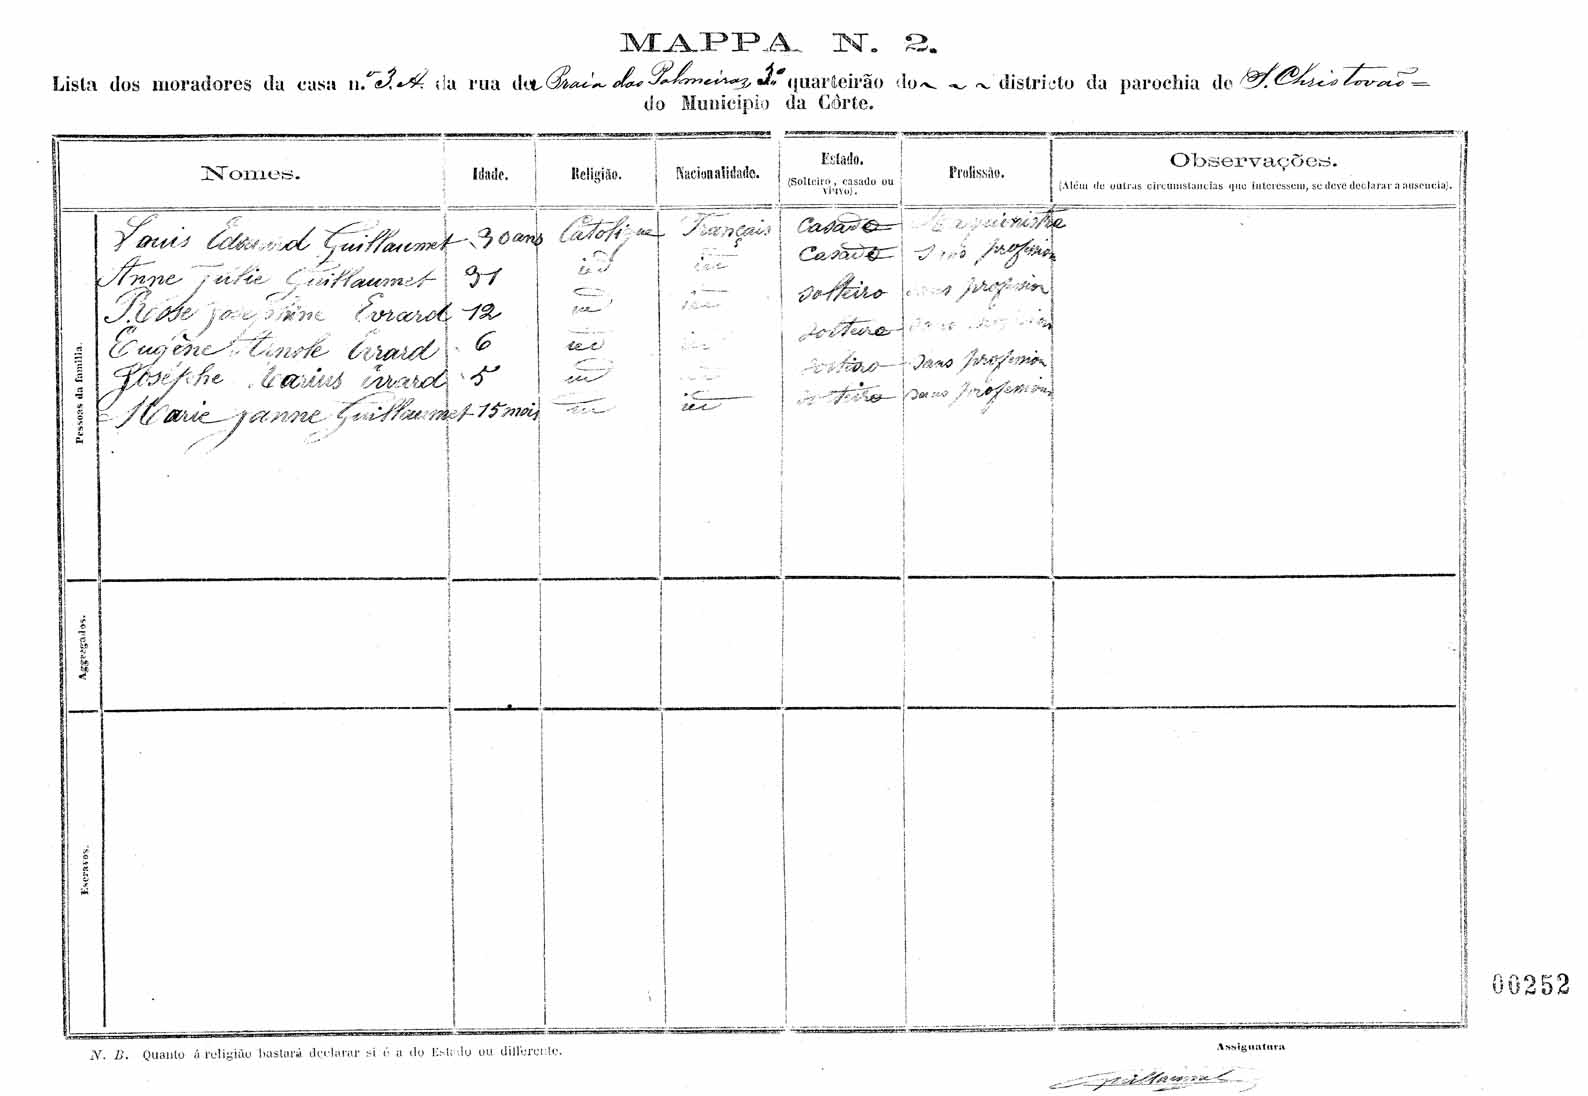 MAPPA N. 2.
Lista dos moradores da casa n.º 3.A. da rua da Praia das Palmeiras 3.º quarteirão do ~ ~ ~ districto da parochia de S. Christovaõ =
do Municipio da Côrte.
Nomes. Idade. Religião. Nacionalidade. Estado. (Solteiro, casado ou viuvo). Profissão. Observações. (Além de outras circumstancias que interessem, se deve declarar a ausencia).
Pessoas da familia.
Louis Edouard Guillaumet 30 ans Catolique Français Casado
Anne Julie Guillaumet 31 id id Casado Sans profession
Rose Josephine Evrard 12 id id Solteiro Sans profession
Eugène Evrard 6 id id Solteiro Sans profession
Joséphe Marius Evrard 5 id Solteiro Sans profession
Marie Janne Guillaumet 15 mois id id Solteiro Sans profession
Aggregados.
Escravos.
00252
N. B. Quanto á religião bastará declarar si é a do Estado ou differente.
Assignatura
Guillaumet